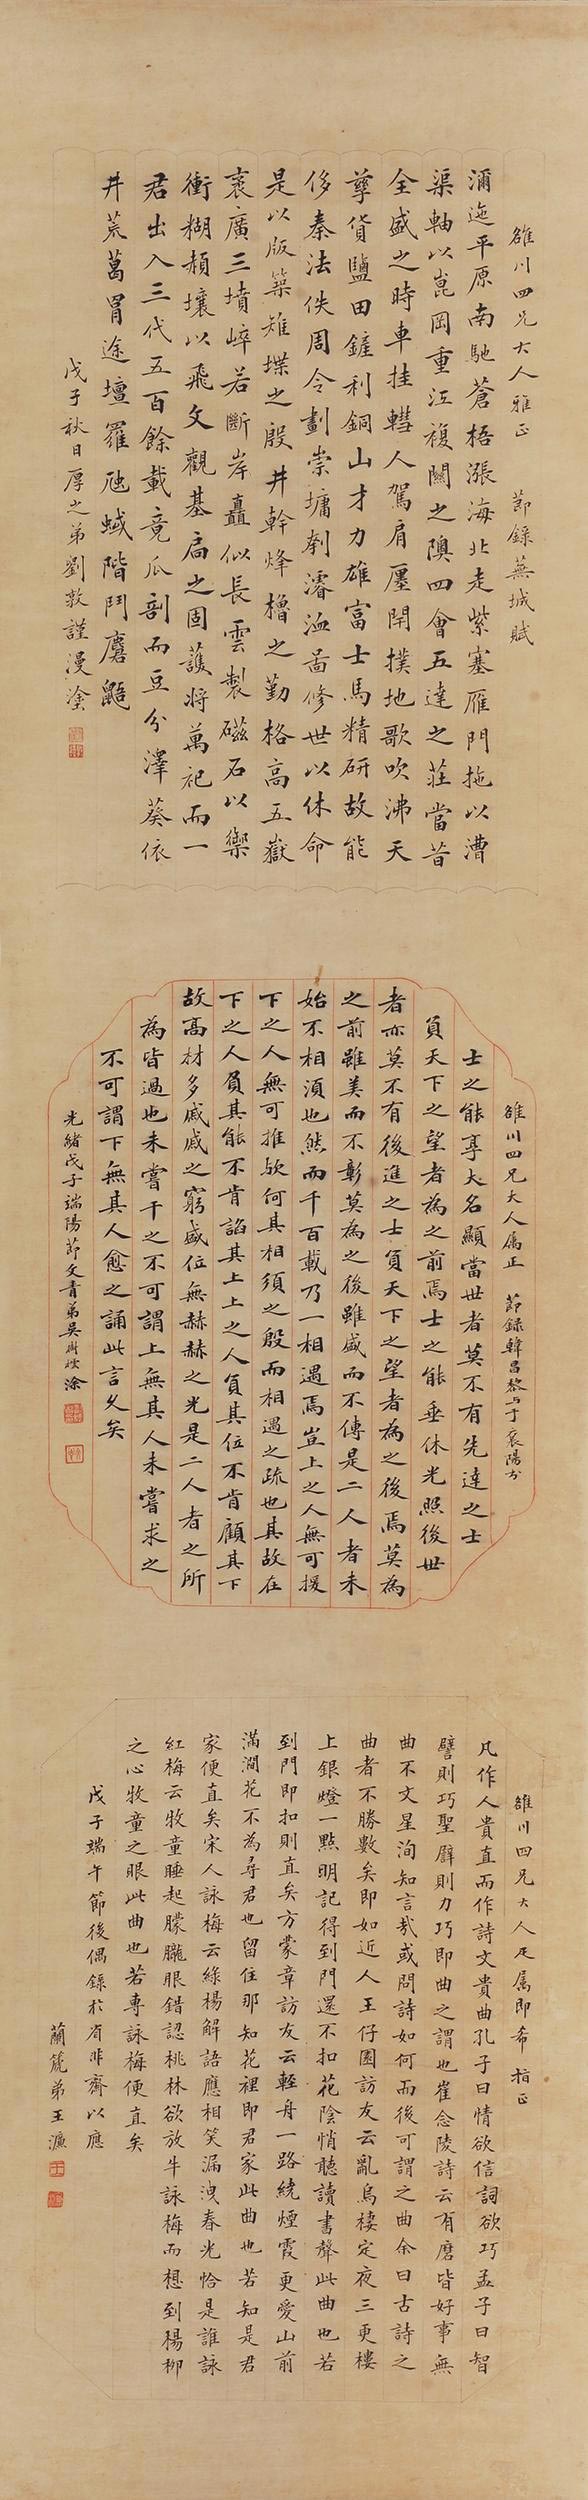 雒川四兄大人雅正 節錄蕪城賦
濔迤平原南馳蒼梧漲海北走紫塞雁門拖以漕
渠軸以崑岡重江複關之隩四會五達之莊當昔
全盛之時車挂轊人駕肩廛閈撲地歌吹沸天
孳貨鹽田鏟利銅山才力雄富士馬精研故能
侈秦法佚周令劃崇墉刳濬洫啚修世以休命
是以版築雉堞之殷井幹烽櫓之勤格高五嶽
袤廣三墳崪若斷岸矗似長雲製磁石以禦
衝糊赬壤以飛文觀基扃之固護將萬祀而一
君出入三代五百餘載竟瓜剖而豆分澤葵依
井荒葛罥途壇羅虺蜮階鬥麏鼯
戊子秋日厚之弟劉敦謹漫塗
雒川四兄大人屬正 節錄韓昌黎与于襄陽書
士之能享大名顯當世者莫不有先達之士
負天下之望者為之前焉士之能垂休光照後世
者亦莫不有後進之士負天下之望者為之後焉莫為
之前雖美而不彰莫為之後雖盛而不傳是二人者未
始不相須也然而千百載乃一相遇焉豈上之人無可援
下之人無可推歟何其相須之殷而相遇之疏也其故在
下之人負其能不肯諂其上上之人負其位不肯顧其下
故高材多戚戚之窮盛位無赫赫之光是二人者之所
為皆過也未嘗干之不可謂上無其人未嘗求之
不可謂下無其人愈之誦此言久矣
光緒戊子端陽節文青弟吳樹棻涂
雒川四兄大人疋属即希 指正
凡作人貴直而作詩文貴曲孔子曰情欲信詞欲巧孟子曰智
譬則巧聖譬則力巧即曲之謂也崔念陵詩云有磨皆好事無
曲不文星洵知言哉或問詩如何而後可謂之曲余曰古詩之
曲者不勝數矣即如近人王仔園訪友云亂烏棲定夜三更樓
上銀燈一點明記得到門還不扣花陰悄聽讀書聲此曲也若
到門即扣則直矣方蒙章訪友云輕舟一路繞煙霞更愛山前
滿澗花不為尋君也留住那知花裡即君家此曲也若知是君
家便直矣宋人詠梅云綠楊解語應相笑漏洩春光恰是誰詠
紅梅云牧童睡起朦朧眼錯認桃林欲放牛詠梅而想到楊柳
之心牧童之眼此曲也若專詠梅便直矣
戊子端午節後偶錄於省非齋以應
蘭箎弟王濂